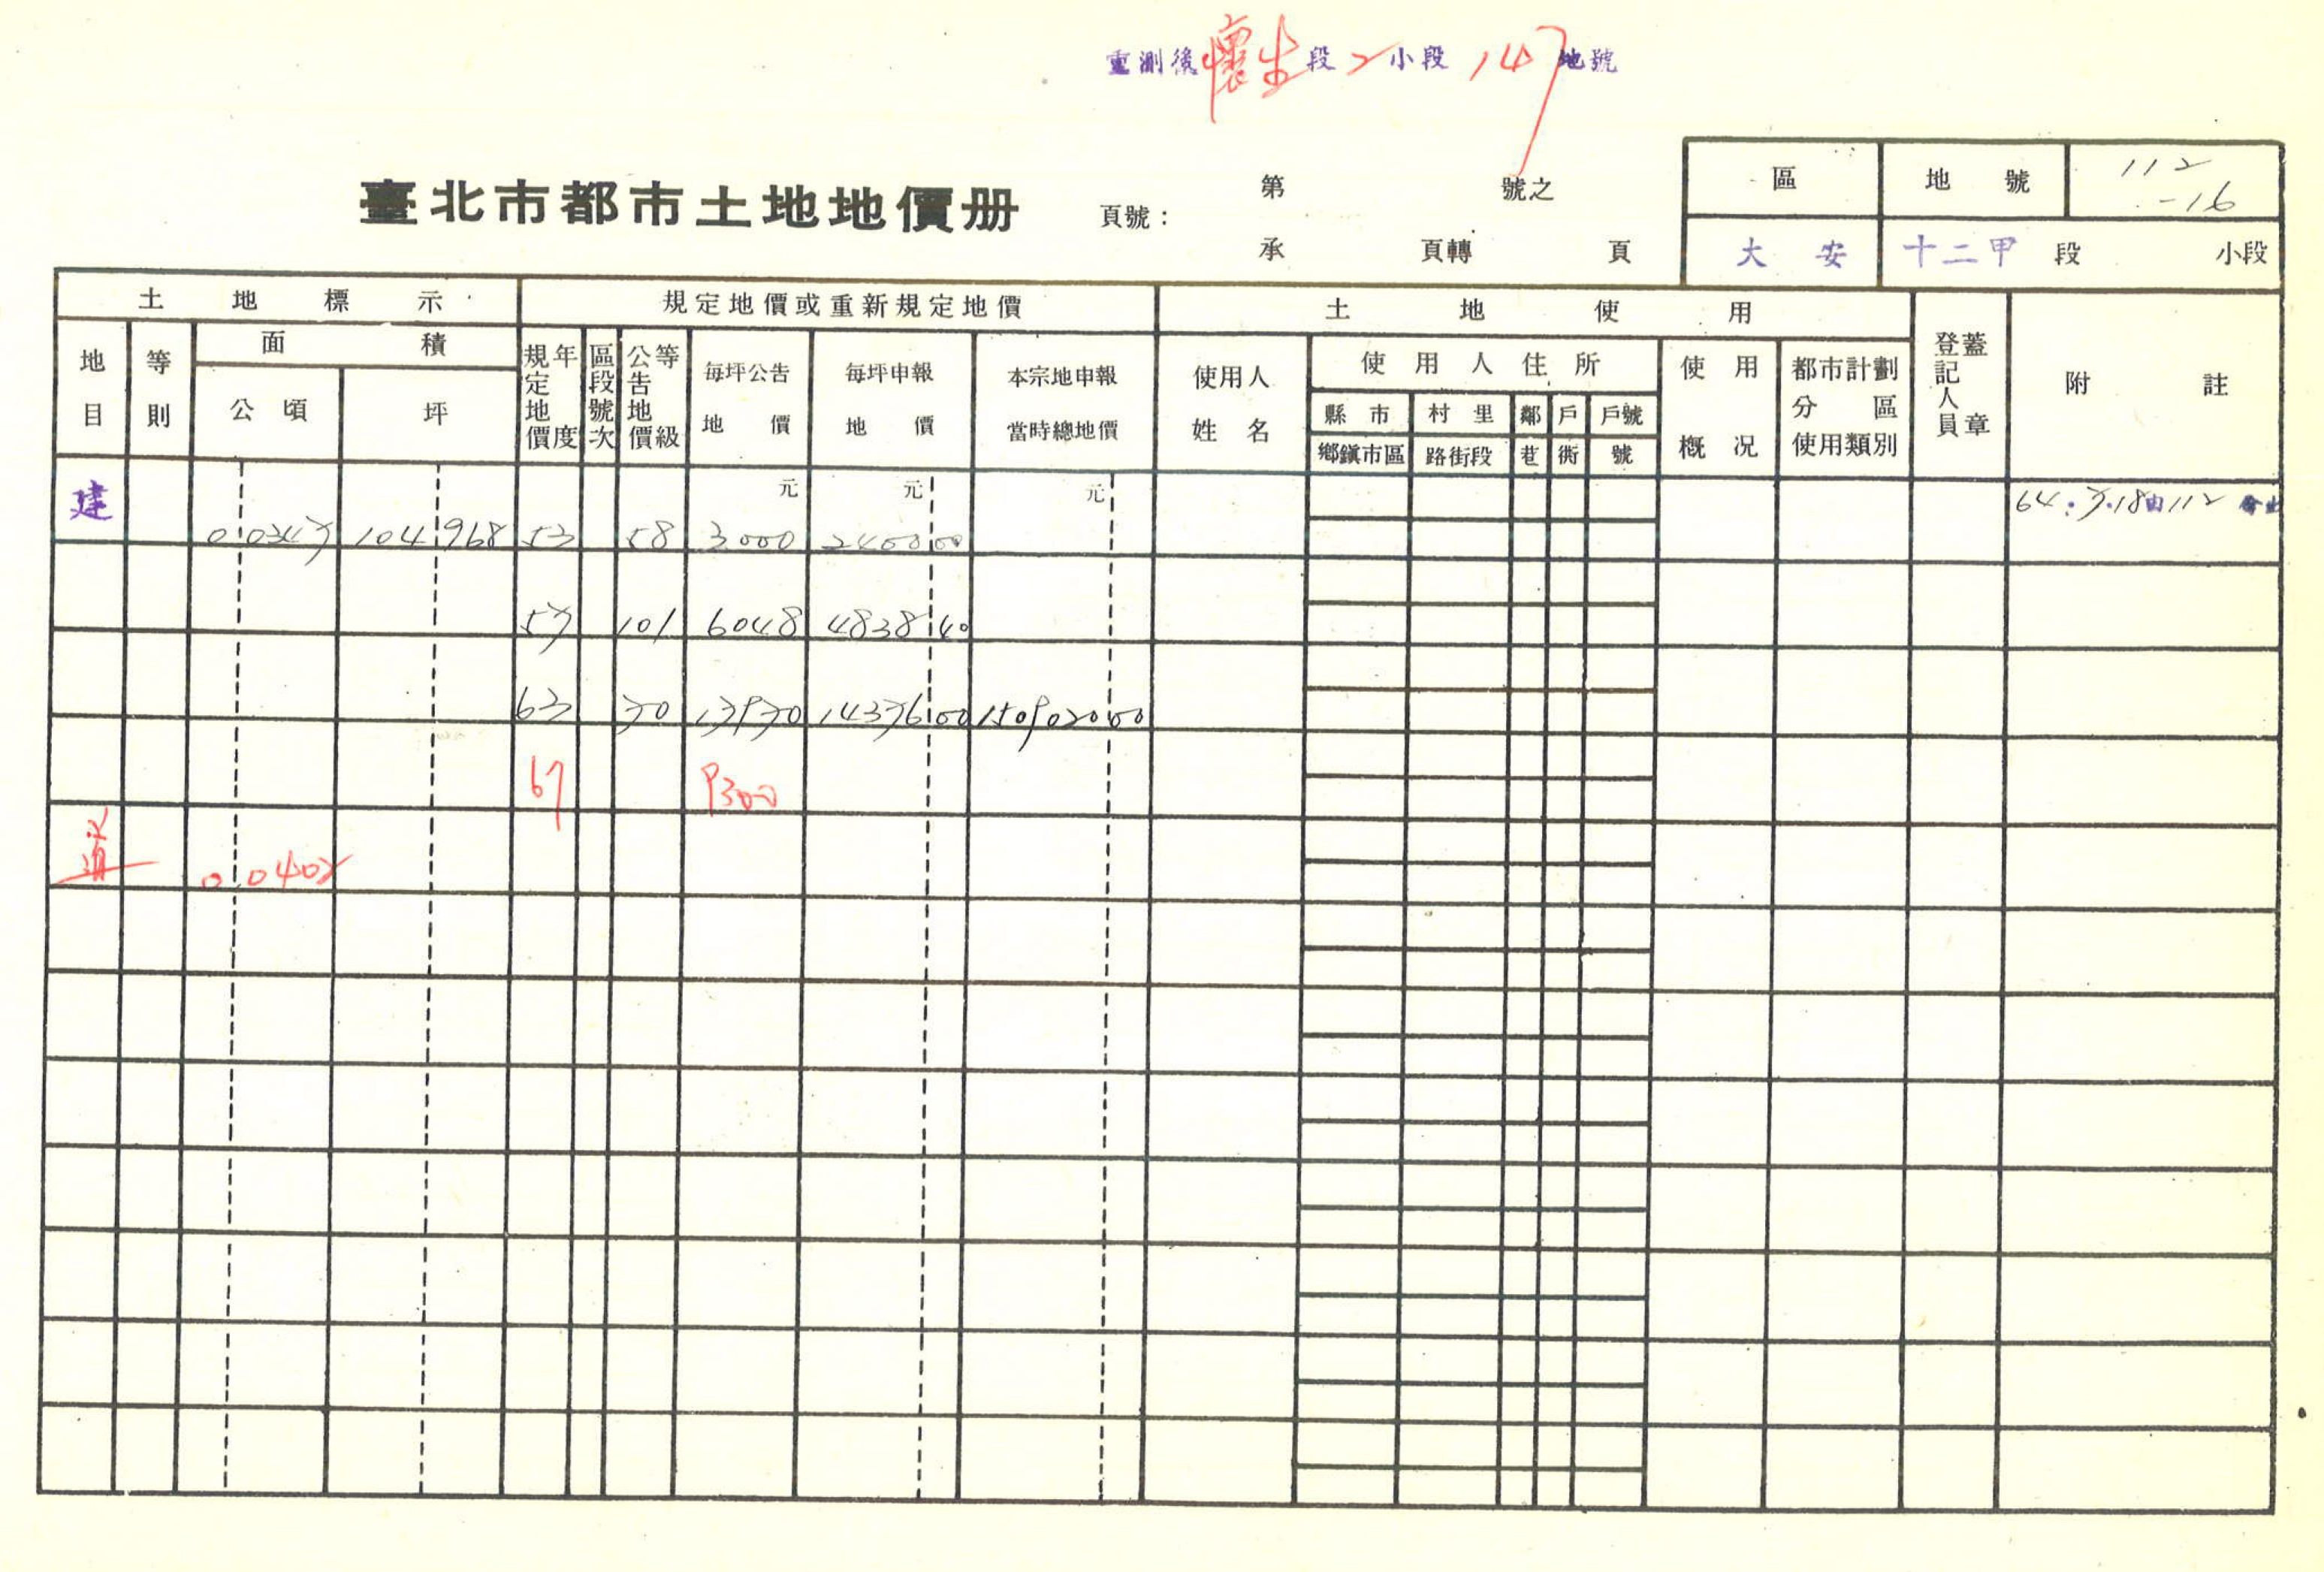 重測後懷生段2小段147地號
臺北市都市土地地價册
頁號：
第 號之
承 頁轉 頁
區 地號 112-16
大安 十二甲 段 小段
土地標示 規定地價或重新規定地價 土地使用 登記人員蓋章 附註
地目 等則 面積 規定地價年度 區段號次 公告地價等級 每坪公告地價 每坪申報地價 本宗地申報當時總地價 使用人姓名 使用人住所 使用概況 都市計劃分區使用類別
公頃 坪 縣市 村里 鄰 戶 戶號
鄉鎮市區 路街段 巷 衖 號
元 元 元
建 0.0347 104.968 53 58 3000 2400.00 64.7.18由112
57 101 6048 4838.40
63 70 17970 14376.00 1509020.00
67 9300
道 0.0402